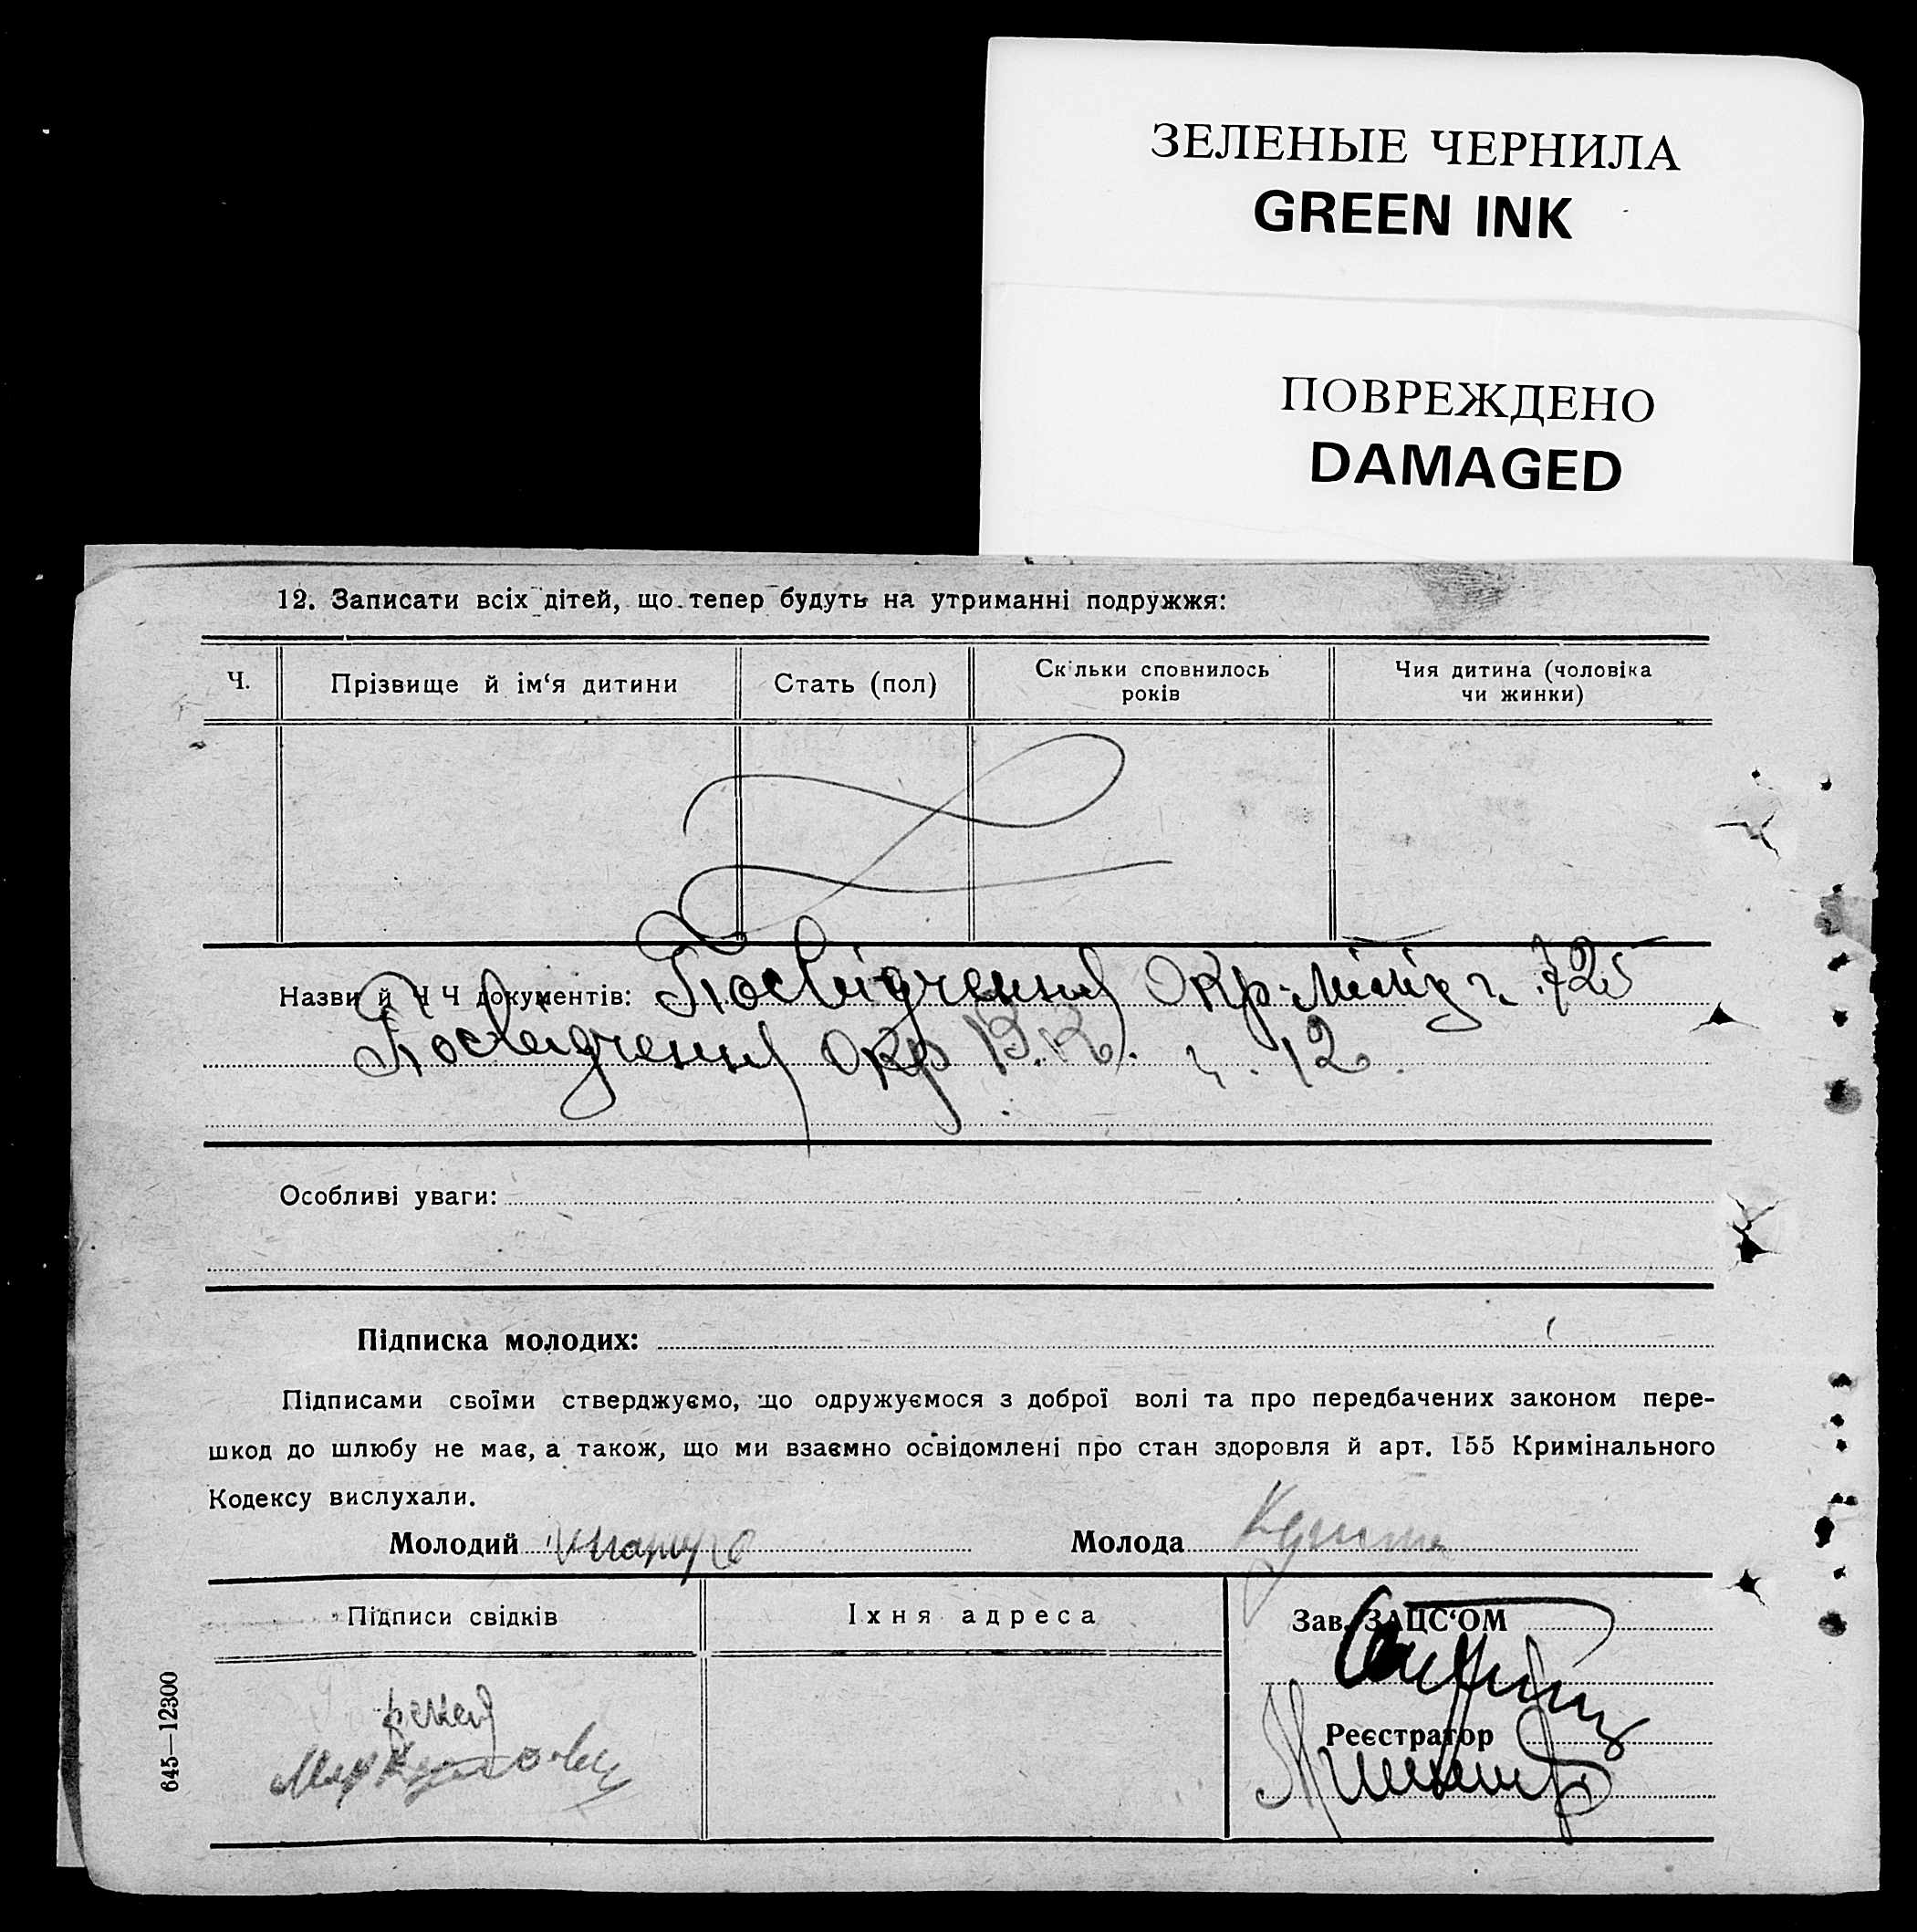 ЗЕЛЕНЫЕ ЧЕРНИЛА
GREEN INK
ПОВРЕЖДЕНО
DAMAGED
12. Записати всіх дітей, що тепер будуть на утриманні подружжя:
Ч.
Прізвище й ім‘я дитини
Стать (пол)
Скільки сповнилось
років
Чия дитина (чоловіка
чи жинки)
Назви й ЧЧ документів: Посвідчення Окр. міліц ч. 725
Посвідчення Окр В.К. ч. 12.
Особливі уваги:
Підписка молодих:
Підписами своїми стверджуємо, що одружуємося з доброї волі та про передбачених законом пере-
шкод до шлюбу не має, а також, що ми взаємно освідомлені про стан здоровля й арт. 155 Кримінального
Кодексу вислухали.
Молодий
Молода
Підписи свідків
Їхня адреса
Зав. ЗАЦС‘ОМ
Реєстратор
645—12300